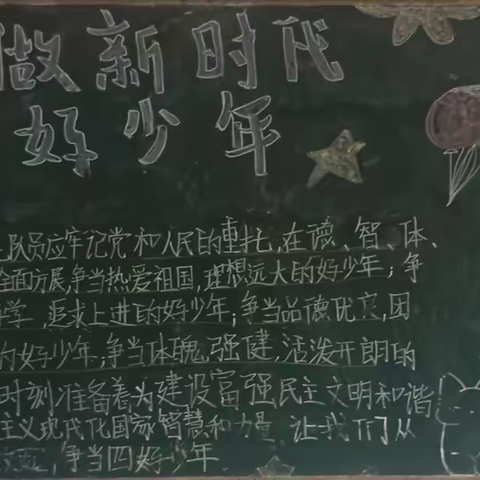 做新时代
好少年
队员应牢记党和人民的重托,在德、智、体、
全面方展,争当热爱祖国,理想远大的好少年;争
学,追求上进的好少年;争当品德优良,团
的好少年;争当体魄强健,活泼开朗的
时刻准备着为建设富强民主文明和谐
主义现代化国家智慧和力量,让我们从
争当四好少年.